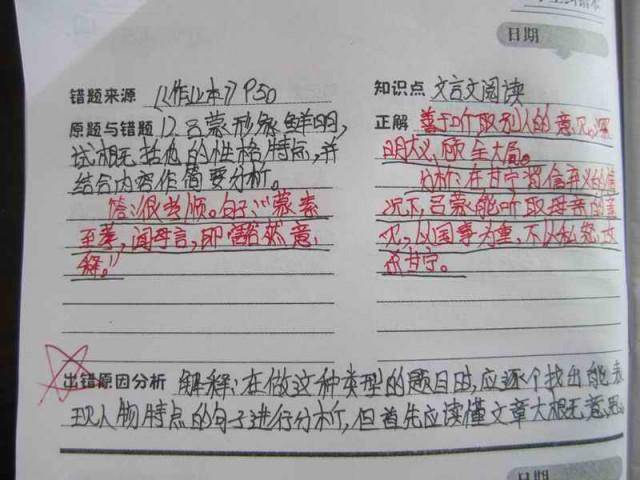 日期
错题来源 《作业本》P50
原题与错题 12.吕蒙形象鲜明,
试概括他的性格特点,并
结合内容作简要分析。
答:很孝顺。句子:“蒙素
至孝,闻母言,即豁然意
释。”
知识点 文言文阅读
正解 善于听取别人的意见。深
明大义,顾全大局。
分析:在甘宁背信弃义的情
况下,吕蒙能听取母亲的意
见,以国事为重,不以私
甘宁。
出错原因分析 解释:在做这种类型的题目时,应逐个找出能表
现人物特点的句子进行分析,但首先应读懂文章大概意思。
日期